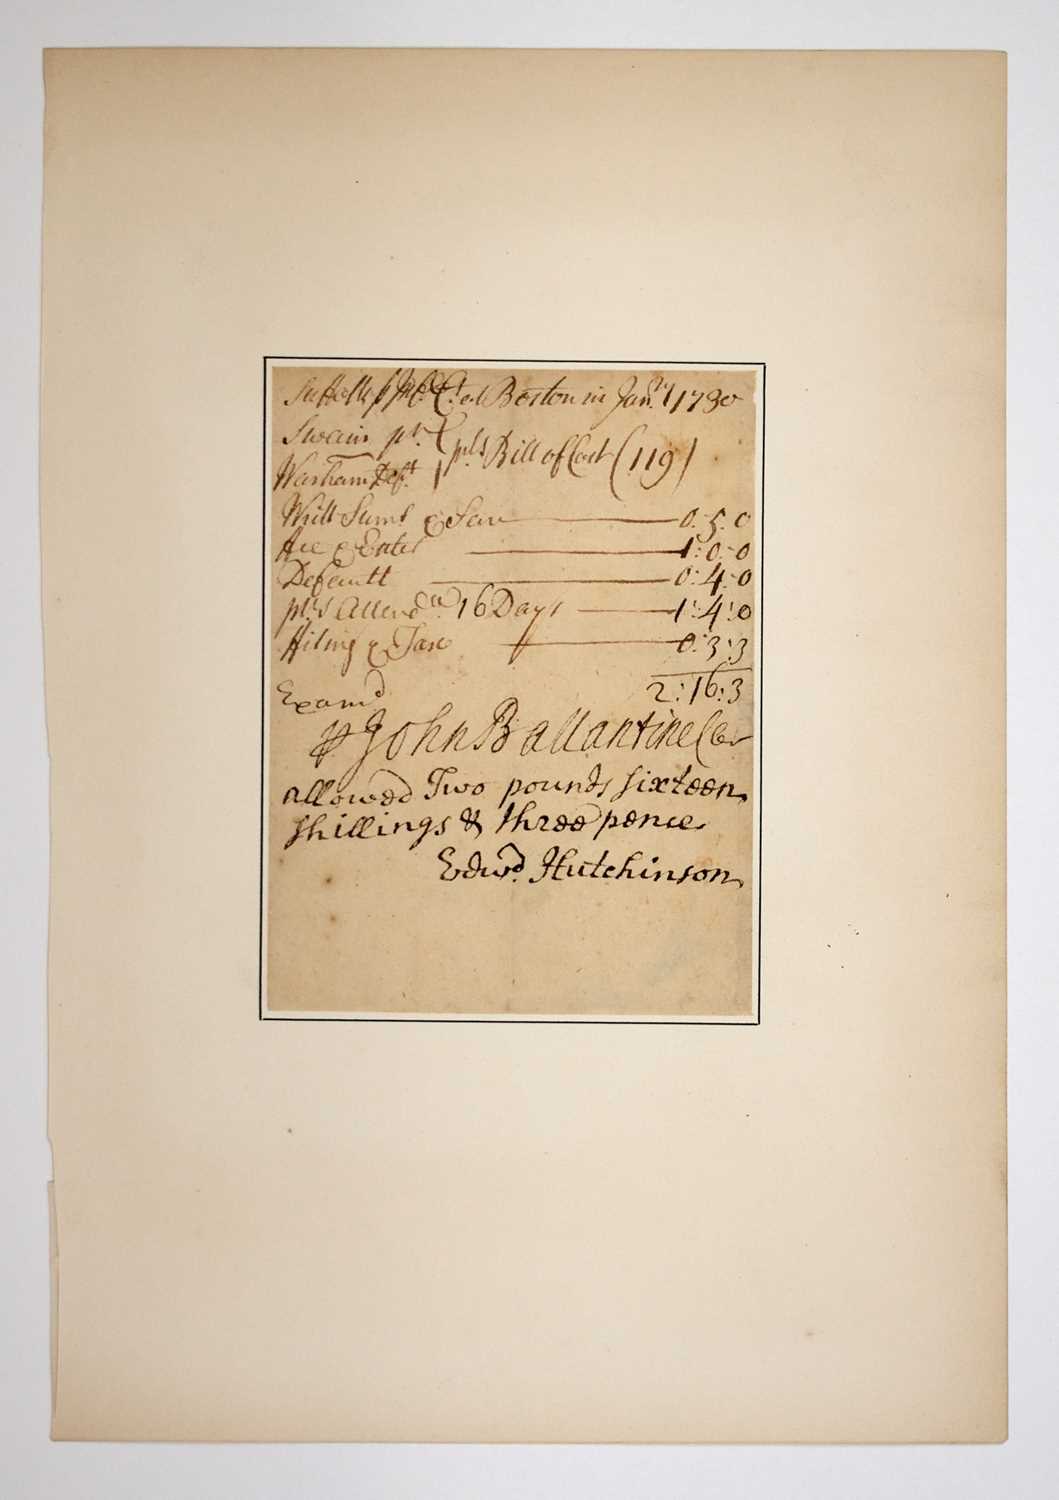 Suffolk ss Inf. Ct. at Boston in Janry 1730
Swain pt.
plts Bill of Cost (119)
Warham Deft.
Writt Sums & Serv 0:5:0
Ace & Enter 1:0:0
Defautt 0:4:0
plts Attenda. 16 Days 1:4:0
Filing & Taxe 0:3:3
2:16:3
Examd
⅌ John Ballantine Cler
allowed Two pounds sixteen
shillings & three pence
Edwd. Hutchinson